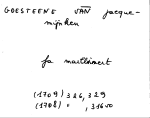 GOESTEENE VAN jacque-
mijnken
fa marthinert
(1709) 326, 329
(1708) " , 31600